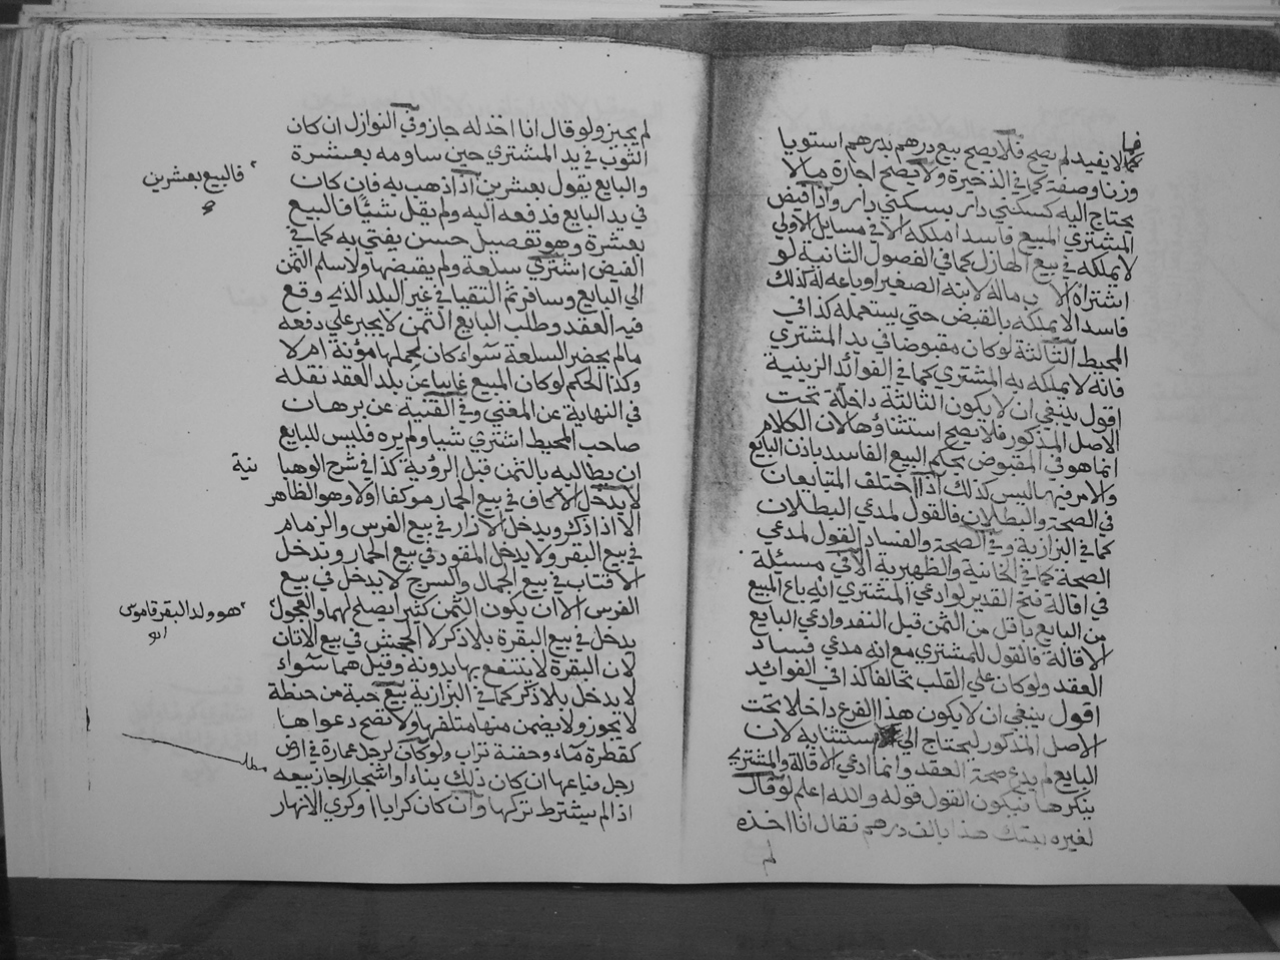 فما
كما لا يفيد لم يصح فلا يصح بيع درهم بدرهم استويا
وزنا وصفة كما في الذخيرة ولا يصح اجارة ما لا
يحتاج اليه كسكني دار بسكني دار واذا قبض
المشتري المبيع فاسدا ملكه الا في مسايل الاولي
لا يملكه في بيع الهازل كما في الفصول الثانية لو
اشتراه الاب من ماله لابنه الصغير او باعه له كذلك
فاسدا لا يملكه بالقبض حتي يستعمله كذا في
المحيط الثالثة لو كان مقبوضا في يد المشتري
فانه لا يملكه به المشتري كما في الفوائد الزينية
اقول ينبغي ان لا يكون الثالثة داخلة تحت
الاصل المذكور فلا يصح استثناؤها لان الكلام
انما هو في المقبوض بحكم البيع الفاسد باذن البايع
والامر فيها ليس كذلك اذا اختلف المتبايعان
في الصحة والبطلان فالقول لمدعي البطلان
كما في البزازية وفي الصحة والفساد القول لمدعي
الصحة كما في الخانية والظهيرية الا في مسئلة
في اقالة فتح القدير لو ادعي المشتري انه باع المبيع
من البايع باقل من الثمن قبل النقد وادعي البايع
الاقالة فالقول للمشتري مع انه مدعي فساد
العقد ولو كان علي القلب تحالفا كذا في الفوائد
اقول ينبغي ان لا يكون هذا الفرع داخلا تحت
الاصل المذكور ليحتاج الي استثنايه لان
البايع لم يدع صحة العقد وانما ادعي الاقالة والمشتري
ينكرها فيكون القول قوله والله اعلم لو قال
لغيره بعتك هذا بالف درهم فقال انا اخذه
لم
لم يجز ولو قال انا اخذ له جاز وفي النوازل ان كان
الثوب في يد المشتري حين ساومه بعشرة
والبايع يقول بعشرين اذا ذهب به فان كان
فالبيع بعشرين
في يد البايع فدفعه اليه ولم يقل شيئا فالبيع
بعشرة وهو تفصيل حسن يفتي به كما في
الفيض اشتري سلعة ولم يقبضها ولا سلم الثمن
الي البايع وسافر ثم التقيا في غير البلد الذي وقع
فيه العقد وطلب البايع الثمن لا يجبر علي دفعه
ما لم يحضر السلعة سواء كان لحملها مؤنة ام لا
وكذا الحكم لو كان المبيع غايبا عن بلد العقد نقله
في النهاية عن المغني وفي القنية عن برهان
صاحب المحيط اشتري شيا ولم يره فليس للبايع
ان يطالبه بالثمن قبل الرؤية كذا في شرح الوهبا نية
لا يدخل الاكاف في بيع الحمار موكفا اولا وهو الظاهر
الا اذا ذكر ويدخل الازار في بيع الفرس والزمام
في بيع البقر ولا يدخل المقود في بيع الحمار وتدخل
الاقتاب في بيع الجمال والسرج لا يدخل في بيع
الفرس الا ان يكون الثمن كثيرا يصلح لهما والعجول
هو ولد البقر قاموس
يدخل في بيع البقرة بلا ذكر لا الجحش في بيع الاتان
لان البقرة لا ينتفع بها بدونه وقيل هما سواء
لا يدخل بلا ذكر كما في البزازية بيع حبة من حنطة
لا يجوز ولا يضمن منها متلفها ولا تصح دعواها
كقطرة ماء وحفنة تراب ولو كان لرجل عمارة في ارض
مطلب
رجل فباعها ان كان ذلك بناء او اشجارا جاز بيعه
اذا لم يشترط تركها وان كان كرابا او كري الانهار